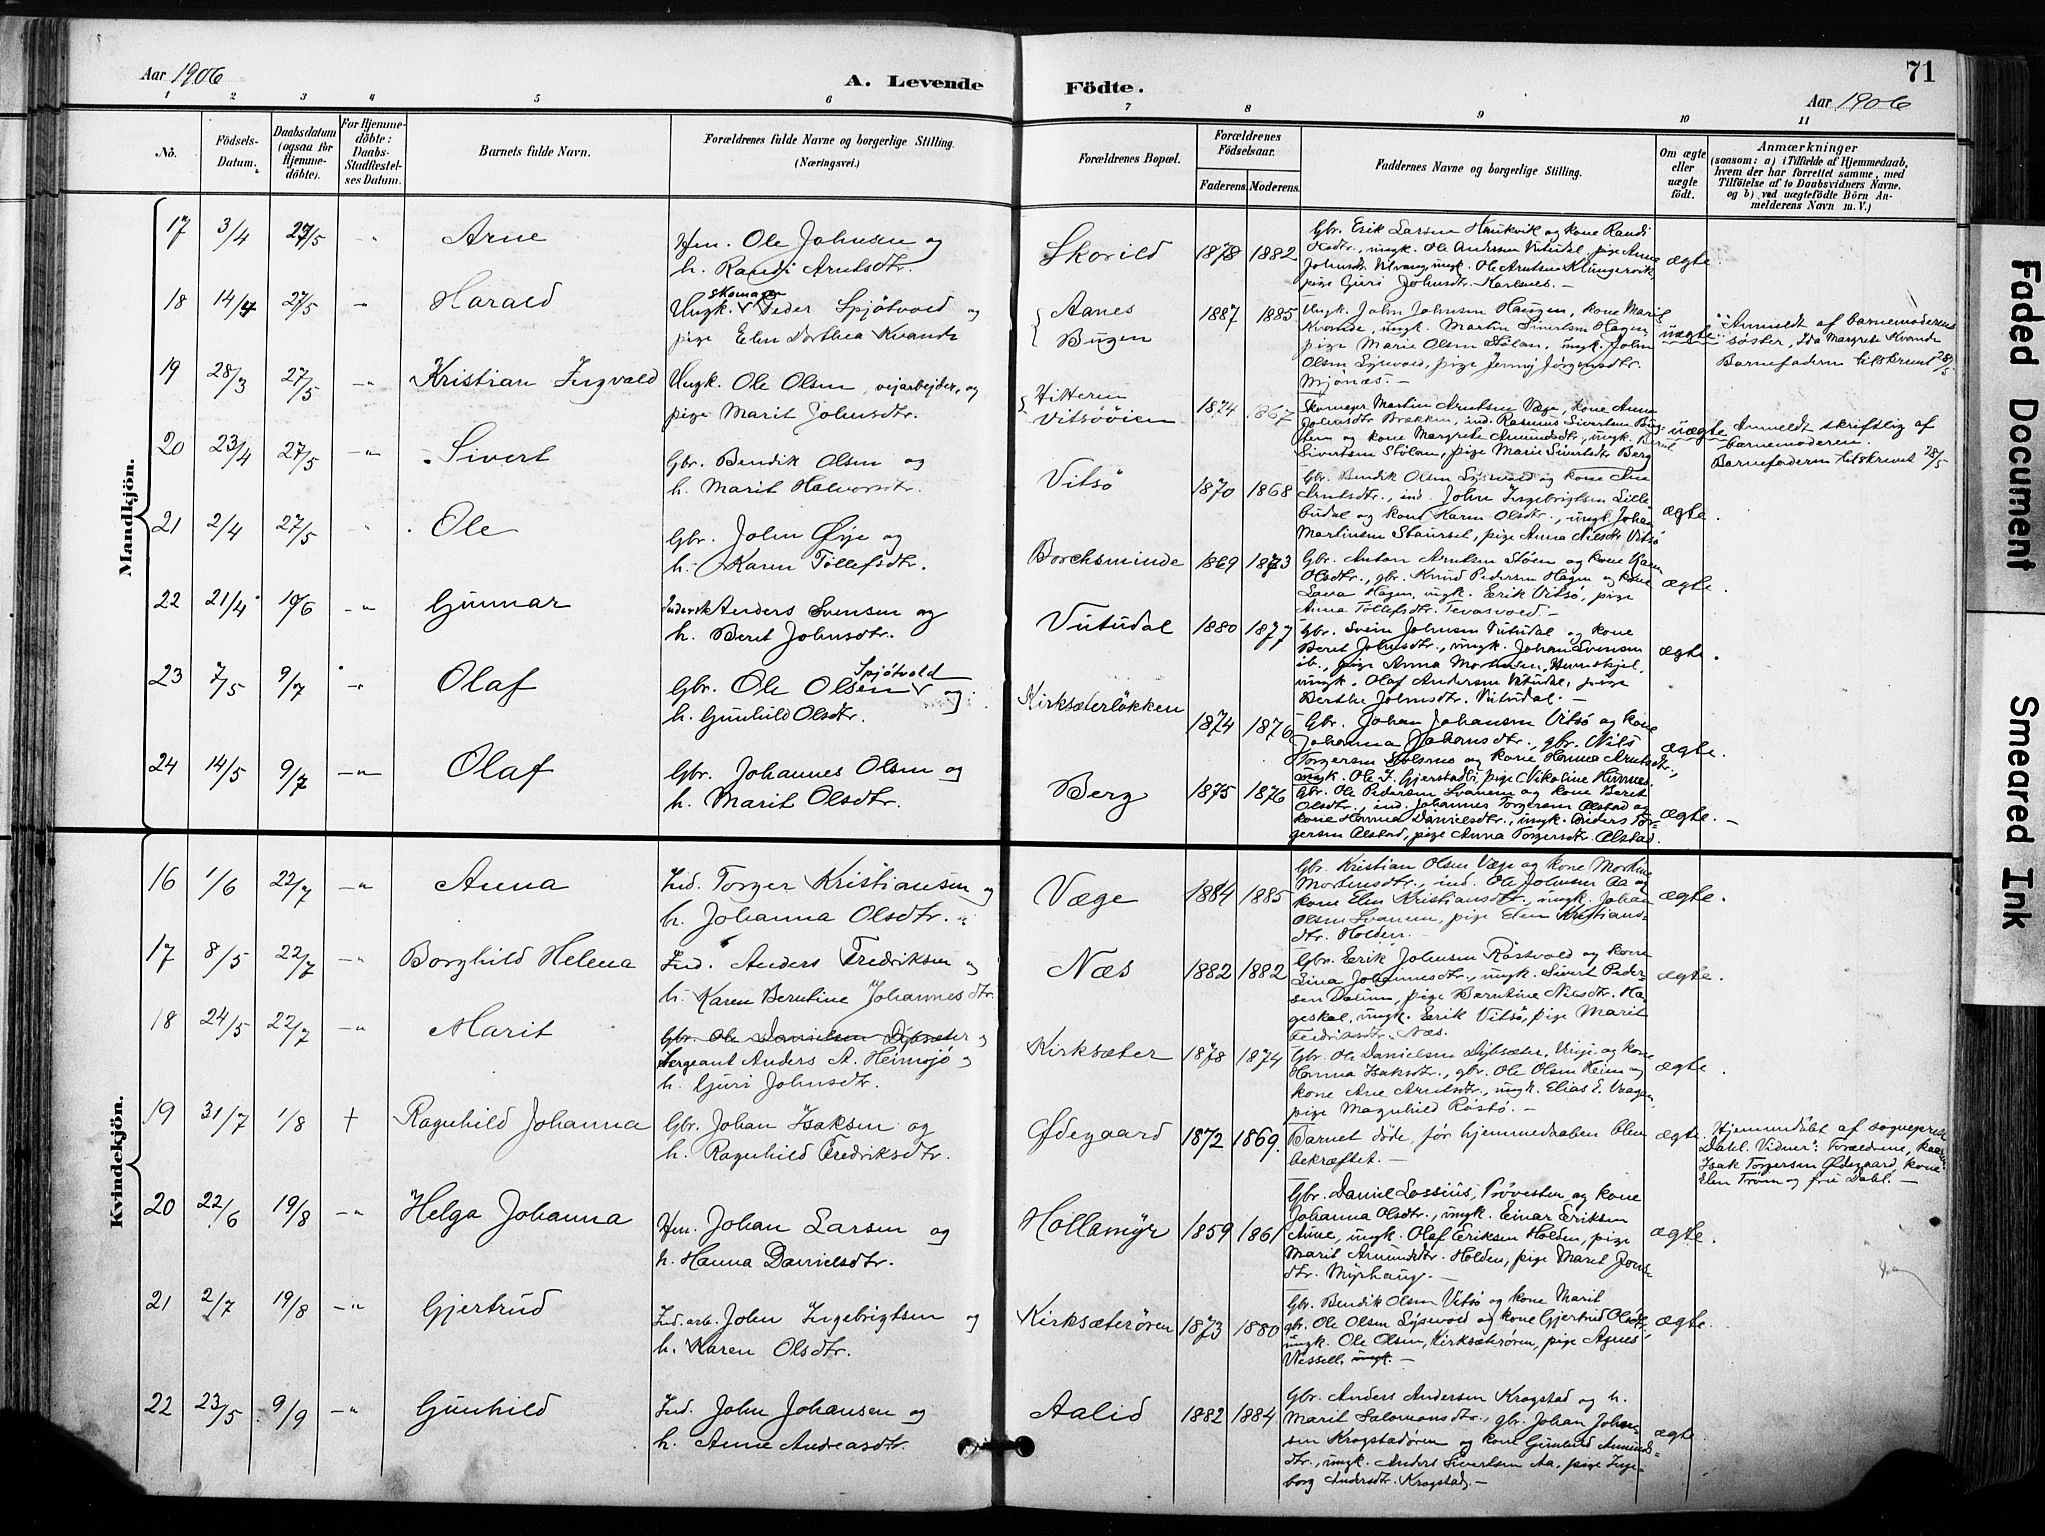 Aar 1906
A. Levende
Födte.
71
Aar 1906
1 2 3 4 5 6 7 8 9 10 11
No.
Födsels-
Datum.
Daabsdatum
(ogsaa for
Hjemme-
döbte).
For Hjemme-
döbte:
Daabs-
Stadfæstel-
ses Datum.
Barnets fulde Navn.
Forældrenes fulde Navne og borgerlige Stilling.
(Næringsvei.)
Forældrenes Bopæl.
Forældrenes
Födselsaar.
Faderens. Moderens.
Faddernes Navne og borgerlige Stilling.
Om ægte
eller
uægte
födt.
Anmærkninger
(saasom: a) i Tilfælde af Hjemmedaab,
hvem der har forrettet samme, med
Tilföielse af to Daabsvidners Navne.
og b) ved uægtefödte Börn An-
melderens Navn m. V.)
Mandkjön.
17 3/4 27/5 -"- Arne
Hm. Ole Johnsen og
h. Randi Arntsdtr.
Skorild 1878 1882
Gbr. Erik Larsen Haukvik og kone Randi
Olsdtr., ungk. Ole Andersen Vutudal, pige Anne
Johnsdtr. ungk. Ole Arntsen Klungervik
pige Guri Johnsdtr. Karlsnes. -
ægte
18 14/4 27/5 - Harald
Skomager
Ungk. Peder Spjötvold og
pige Elen Dorthea Kvande
Aanes
Bugen
1887 1885
Ungk. John Johnsen Haugen, kone Marit
Kvande, ungk. Martin Sivertsen Hagen
pige Marie Olsen Stölan, ungk. John
Olsen Lysvold, pige Jenny Jörgensdtr.
Mjönæs. -
uægte
Anmeldt af barnemoderens
söster, Ida Margrete Kvande
Barnefaderen tilskrevet 28/5
19 28/3 27/5 -"- Kristian Ingvald
Ungk. Ole Olsen, vejarbejder, og
pige Marit Johnsdtr.
Hitteren
Vitsööien
1874 1867
Skomager Martin Arntsen Væge, kone Anne
Johnsdtr Brækken, ind. Rasmus Sivertsen
og kone Margrete Amundsdtr., ungk.
Sivertsen Stölan, pige Marie Sivertsdtr Berg
uægte
Anmeldt skriftlig af
barnemoderen.
Barnefaderen tilskrevet 28/5
20 23/4 27/5 -"- Sivert
Gbr. Bendik Olsen og
h. Marit Halvorsdtr.
Vitsö 1870 1868
Gbr. Bendik Olsen Lysvold og kone
Arntsdtr., ind. John Ingebrigtsen Lille-
budal og kone Karen Olsdtr., ungk. Johan
Martinsen Staursel, pige Anna Nilsdtr Vitsö
ægte.
21 2/4 27/5 Ole
Gbr. John Öye og
h. Karen Tollefsdtr.
Borchsminde 1869 1873
Gbr. Anton Arntsen Stöen og kone Karen
Olsdtr., gbr. Knud Pedersen Hagen og kone
Lava Hagen, ungk. Erik Vitsö, pige
Anna Tollefsdtr. Tevasvold -
ægte.
22 21/4 10/6 -"- Gunnar
Inderst Anders Svensen og
h. Beret Johnsdtr.
Vutudal 1880 1877
Gbr. Svein Johnsen Vutudal og kone
Beret Johnsdtr., ungk. Johan Svensen
ib., pige Anna Mortensen, Hunskjel,
ungk. Olaf Andersen Vutudal, pige
Berthe Johnsdtr. Vutudal. -
ægte.
23 7/5 9/7 -"- Olaf
Spjötvold
Gbr. Ole Olsen og
h. Gunhild Olsdtr.
Kirksæterlökken 1874 1876
Gbr. Johan Johansen Vitsö og kone
Johanna Johansdtr., gbr. Nils
Torgersen Solsmo og kone Hanna Arntsdtr.,
ungk. Ole J. Gjerstadli, pige Nikoline
ægte.
24 14/5 9/7 -"- Olaf
Gbr. Johannes Olsen og
h. Marit Olsdtr.
Berg 1875 1876
Gbr. Ole Pedersen Svanem og kone Beret
Olsdtr., ind. Johannes Torgersen Ölstad og
kone Hanna Danielsdtr., ungk. Anders Tor-
gersen Ölstad, pige Anna Torgersdtr. Ölstad.
ægte. -
Kvindekjön.
16 1/6 22/7 -"- Anna
Ind. Torger Kristiansen og
h. Johanna Olsdtr. "
Væge 1884 1885
Gbr. Kristian Olsen Væge og kone Mortine
Mortensdtr., ind. Ole Johnsen Aa og
kone Elen Kristiansdtr., ungk. Johan
Olsen Svanem, pige Elen Kristians-
dtr. Holden. -
ægte.
17 8/5 22/7 -"- Borghild Helena
Ind. Anders Fredriksen og
h. Karen Berntine Johannesdtr.
Næs 1882 1882
Gbr. Erik Johnsen Röstvold og kone
Lina Johannesdtr., ungk. Sivert Peder-
sen Dalum, pige Berntine Nilsdtr. Ha-
geskal, ungk. Erik Vitsö, pige Marit
Fredriksdtr. Næs.
ægte.
18 24/5 22/7 -"- Marit
Gbr. Ole Danielsen Dybsæter og
Sergeant Anders A. Heimsjö og
h. Guri Johnsdtr.
Kirksæter 1878 1874
Gbr. Ole Danielsen Dybsæter, Vinje og kone
Hanna Isaksdtr., gbr. Ole Olsen Heim og
kone Ane Arntsdtr., ungk. Elias E. Vaagen,
pige Magnhild Röstö. -
ægte.
19 31/7 1/8 + Ragnhild Johanna
Gbr. Johan Isaksen og
h. Ragnhild Fredriksdtr.
Ödegaard 1872 1869.
Barnet döde, för hjemmedaaben blev
bekræftet. -
ægte.
Hjemmedöbt af sogneprest
Dahl. Vidner: Forældrene,
Isak Torgersen Ödegaard, kone
Elen Tröm og fru Dahl. -
20 22/6 19/8 -"- Helga Johanna
Hm. Johan Larsen og
h. Hanna Danielsdtr.
Hollamyr 1859 1861
Gbr. Daniel Lossius, Prövesten, og kone
Johanna Olsdtr., ungk. Einar Eriksen
Aune, ungk. Olaf Eriksen Holden, pige
Marit Amundsdtr. Holden, pige Maret Jons-
dtr. Myrhaug. -
ægte.
21 2/7 19/8 -"- Gjertrud
Ind. arb. John Ingebrigtsen og
h. Karen Olsdtr.
Kirksæterören 1873 1880
Gbr. Bendik Olsen Vitsö og kone Marit
gbr. Ole Olsen Lysvold og kone Gjertrud Olsdtr.,
ungk. Ole Olsen, Kirksæterören, pige Agnes
Wessell, ungk. -
ægte.
22 23/5 9/9 -"- Gunhild
Ind. John Johansen og
h. Anne Andreasdtr.
Aalid 1882 1884
Gbr. Anders Andersen Krogstad og h.
Marit Salomonsdtr., gbr. Johan Johan-
sen Krogstadören og kone Gunhild Amunds-
dtr., ungk. Anders Sivertsen Aa, pige Inge-
borg Andersdtr. Krogstad. -
ægte
Faded Document
Smeared Ink